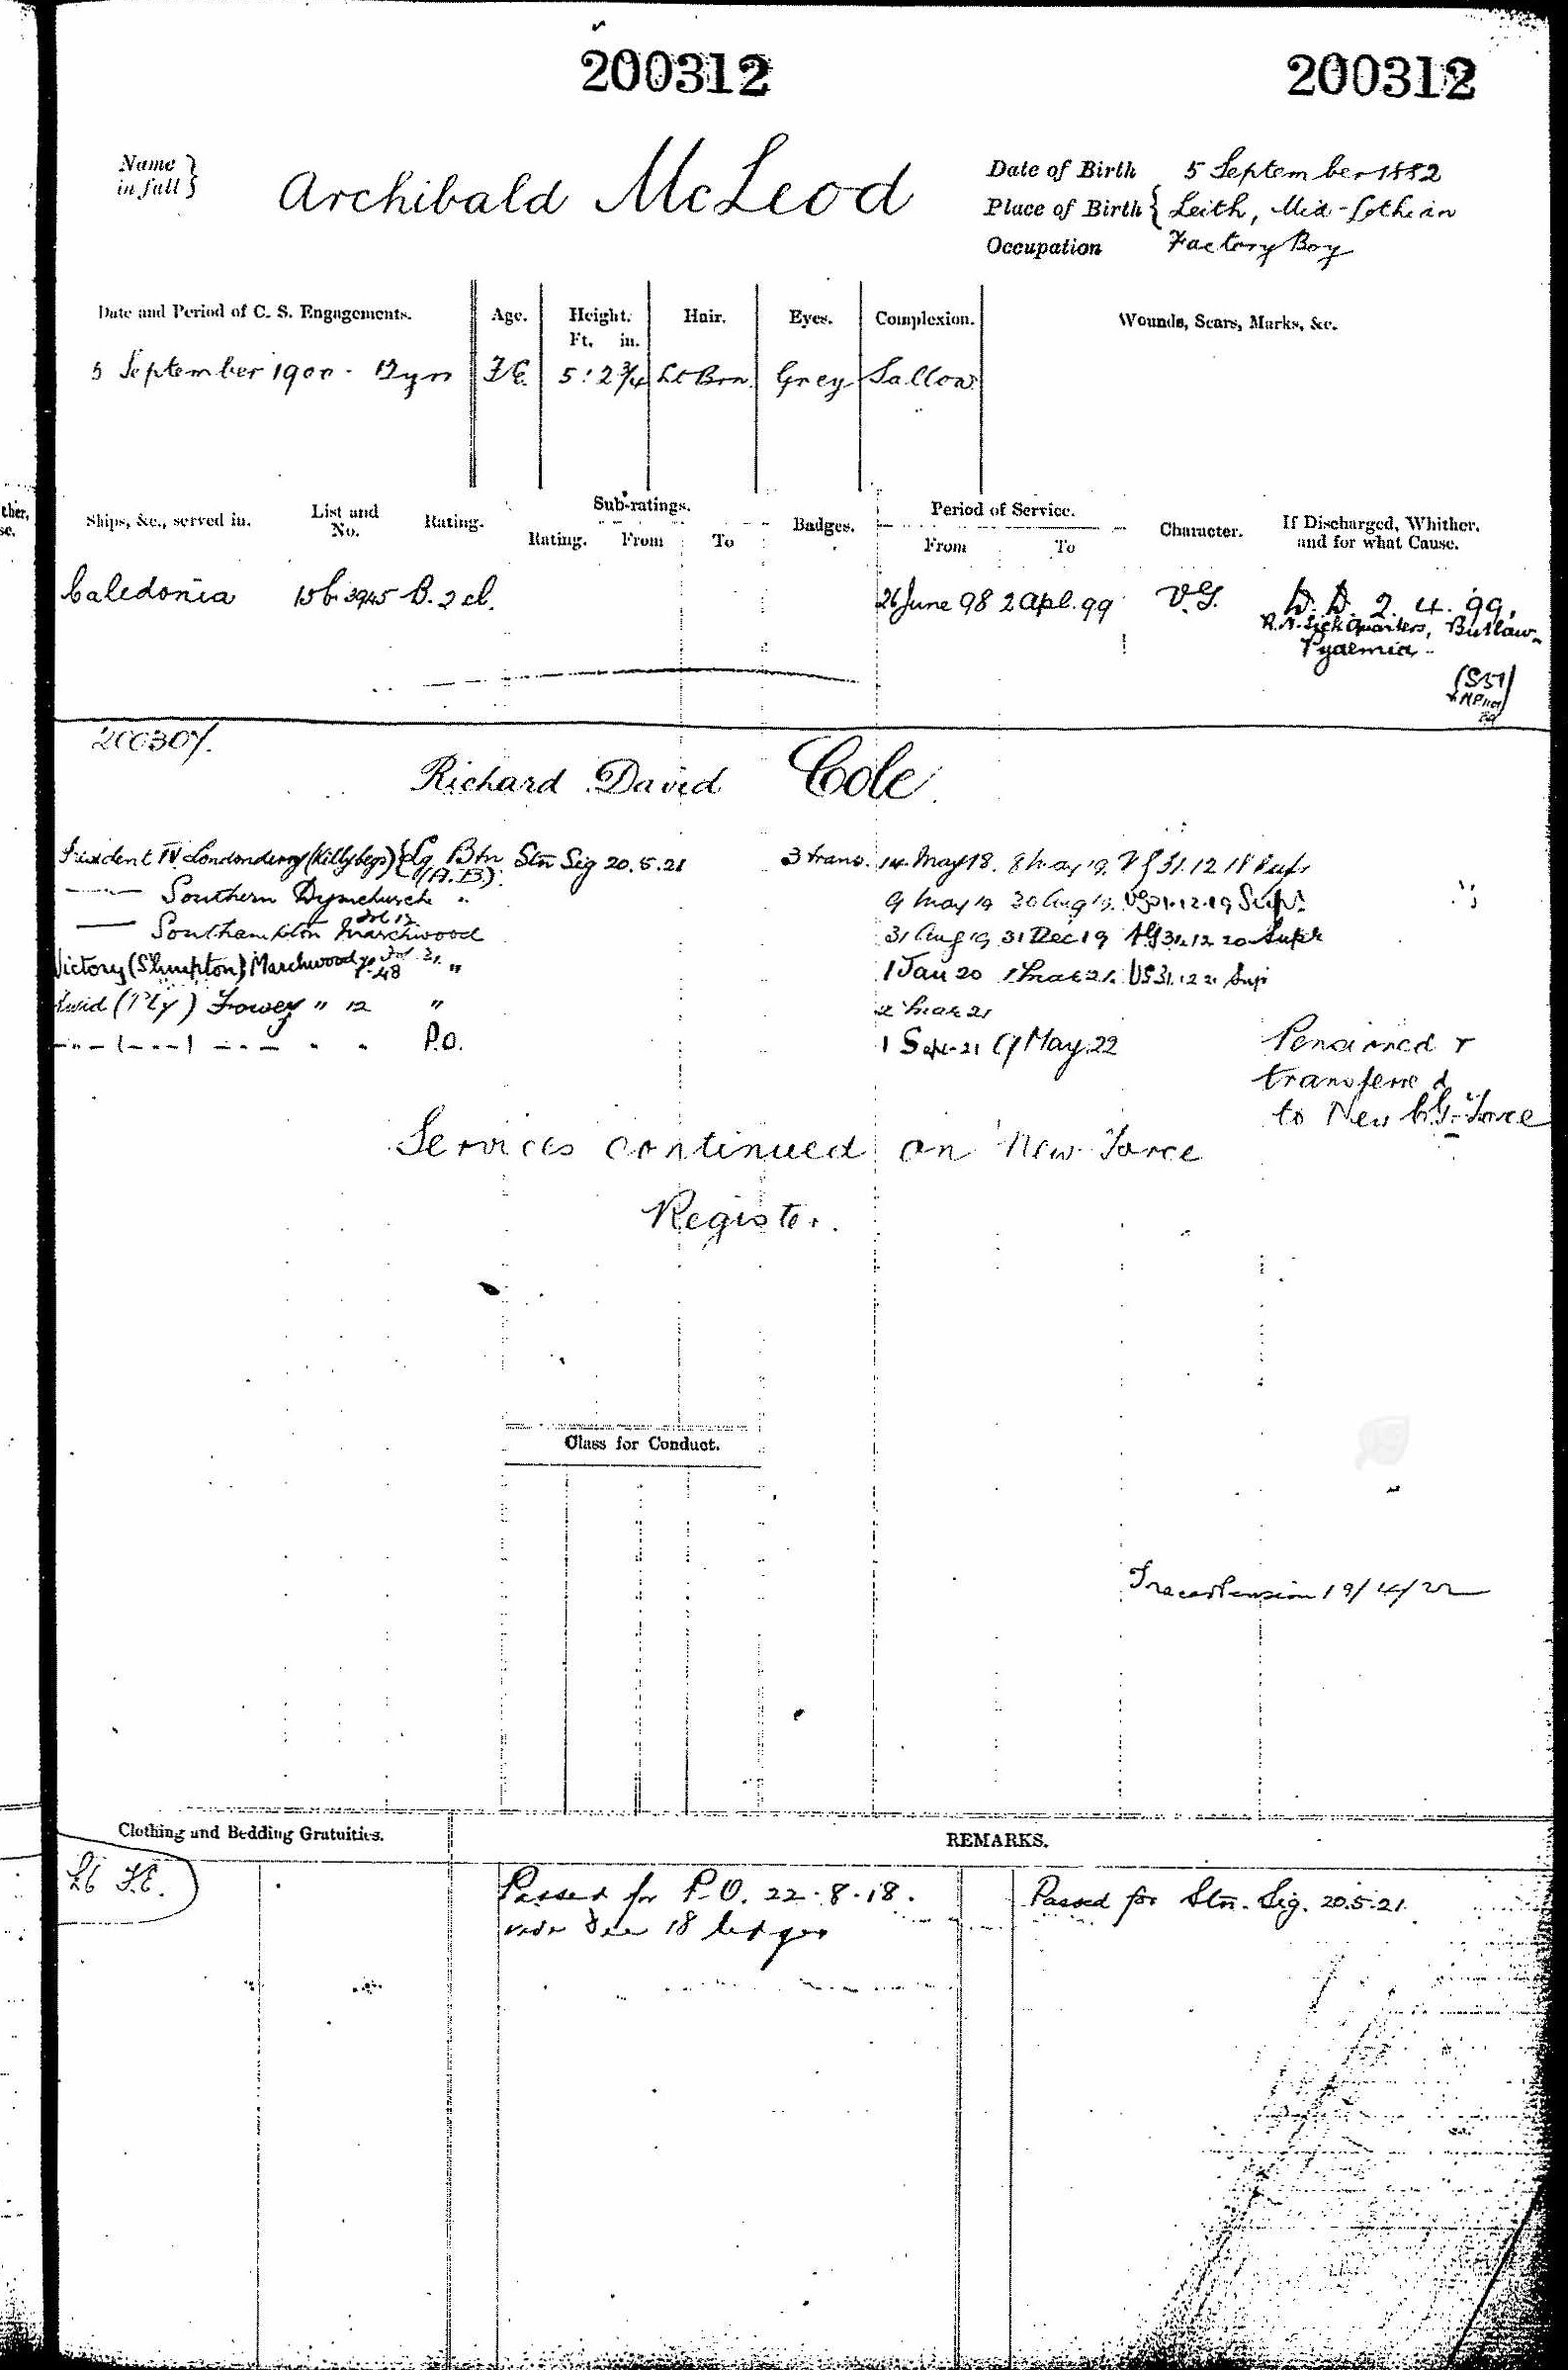 200312 200312
Name in full } Archibald McLeod
Date of Birth 5 September 1882
Place of Birth { Leith, Mid-Lothian
Occupation Factory Boy
Date and Period of C. S. Engagements. Age. Height. Ft. in. Hair. Eyes. Complexion. Wounds, Scars, Marks, &c.
5 September 1900 - 12 yrs 5 : 2 3/4 Lt Brn. Grey Sallow
Ships, &c., served in. List and No. Rating. Sub-ratings. Rating. From To Badges. Period of Service. From To Character. If Discharged, Whither, and for what Cause.
ther,
se.
Caledonia 15b 3945 B. 2 cl. 26 June 98 2 Apl. 99 V.G. D.D. 2. 4. 99,
R.N. Sick Quarters, Butlaw-
Pyaemia
200307.
Richard David Cole
President IV Londonderry (Killybegs) Lg Btn (A.B.) Stn Sig 20.5.21 3 trans. 14 May 18. 8 May 19. VG 31.12.18 Supr
Southern Dymchurch " 9 May 19 30 Aug 19. VG 31.12.19 Supr
Southampton Marchwood 31 Aug 19 31 Dec 19 VG 31.12.20 Supr
Victory (S'hmpton) Marchwood " 1 Jan 20 1 Mar 21. VG 31.12.21 Supr
(Ply) Fowey " 12 " 2 Mar 21
" " P.O. 1 Sept 21 9 May 22 Pensioned &
transferred
to New C.G. Force
Services continued on New Force
Register.
Class for Conduct.
Traced Pension 19/4/22
Clothing and Bedding Gratuities. REMARKS.
Passed for P.O. 22.8.18. Passed for Stn. Sig. 20.5.21.
Dec 18 ledger